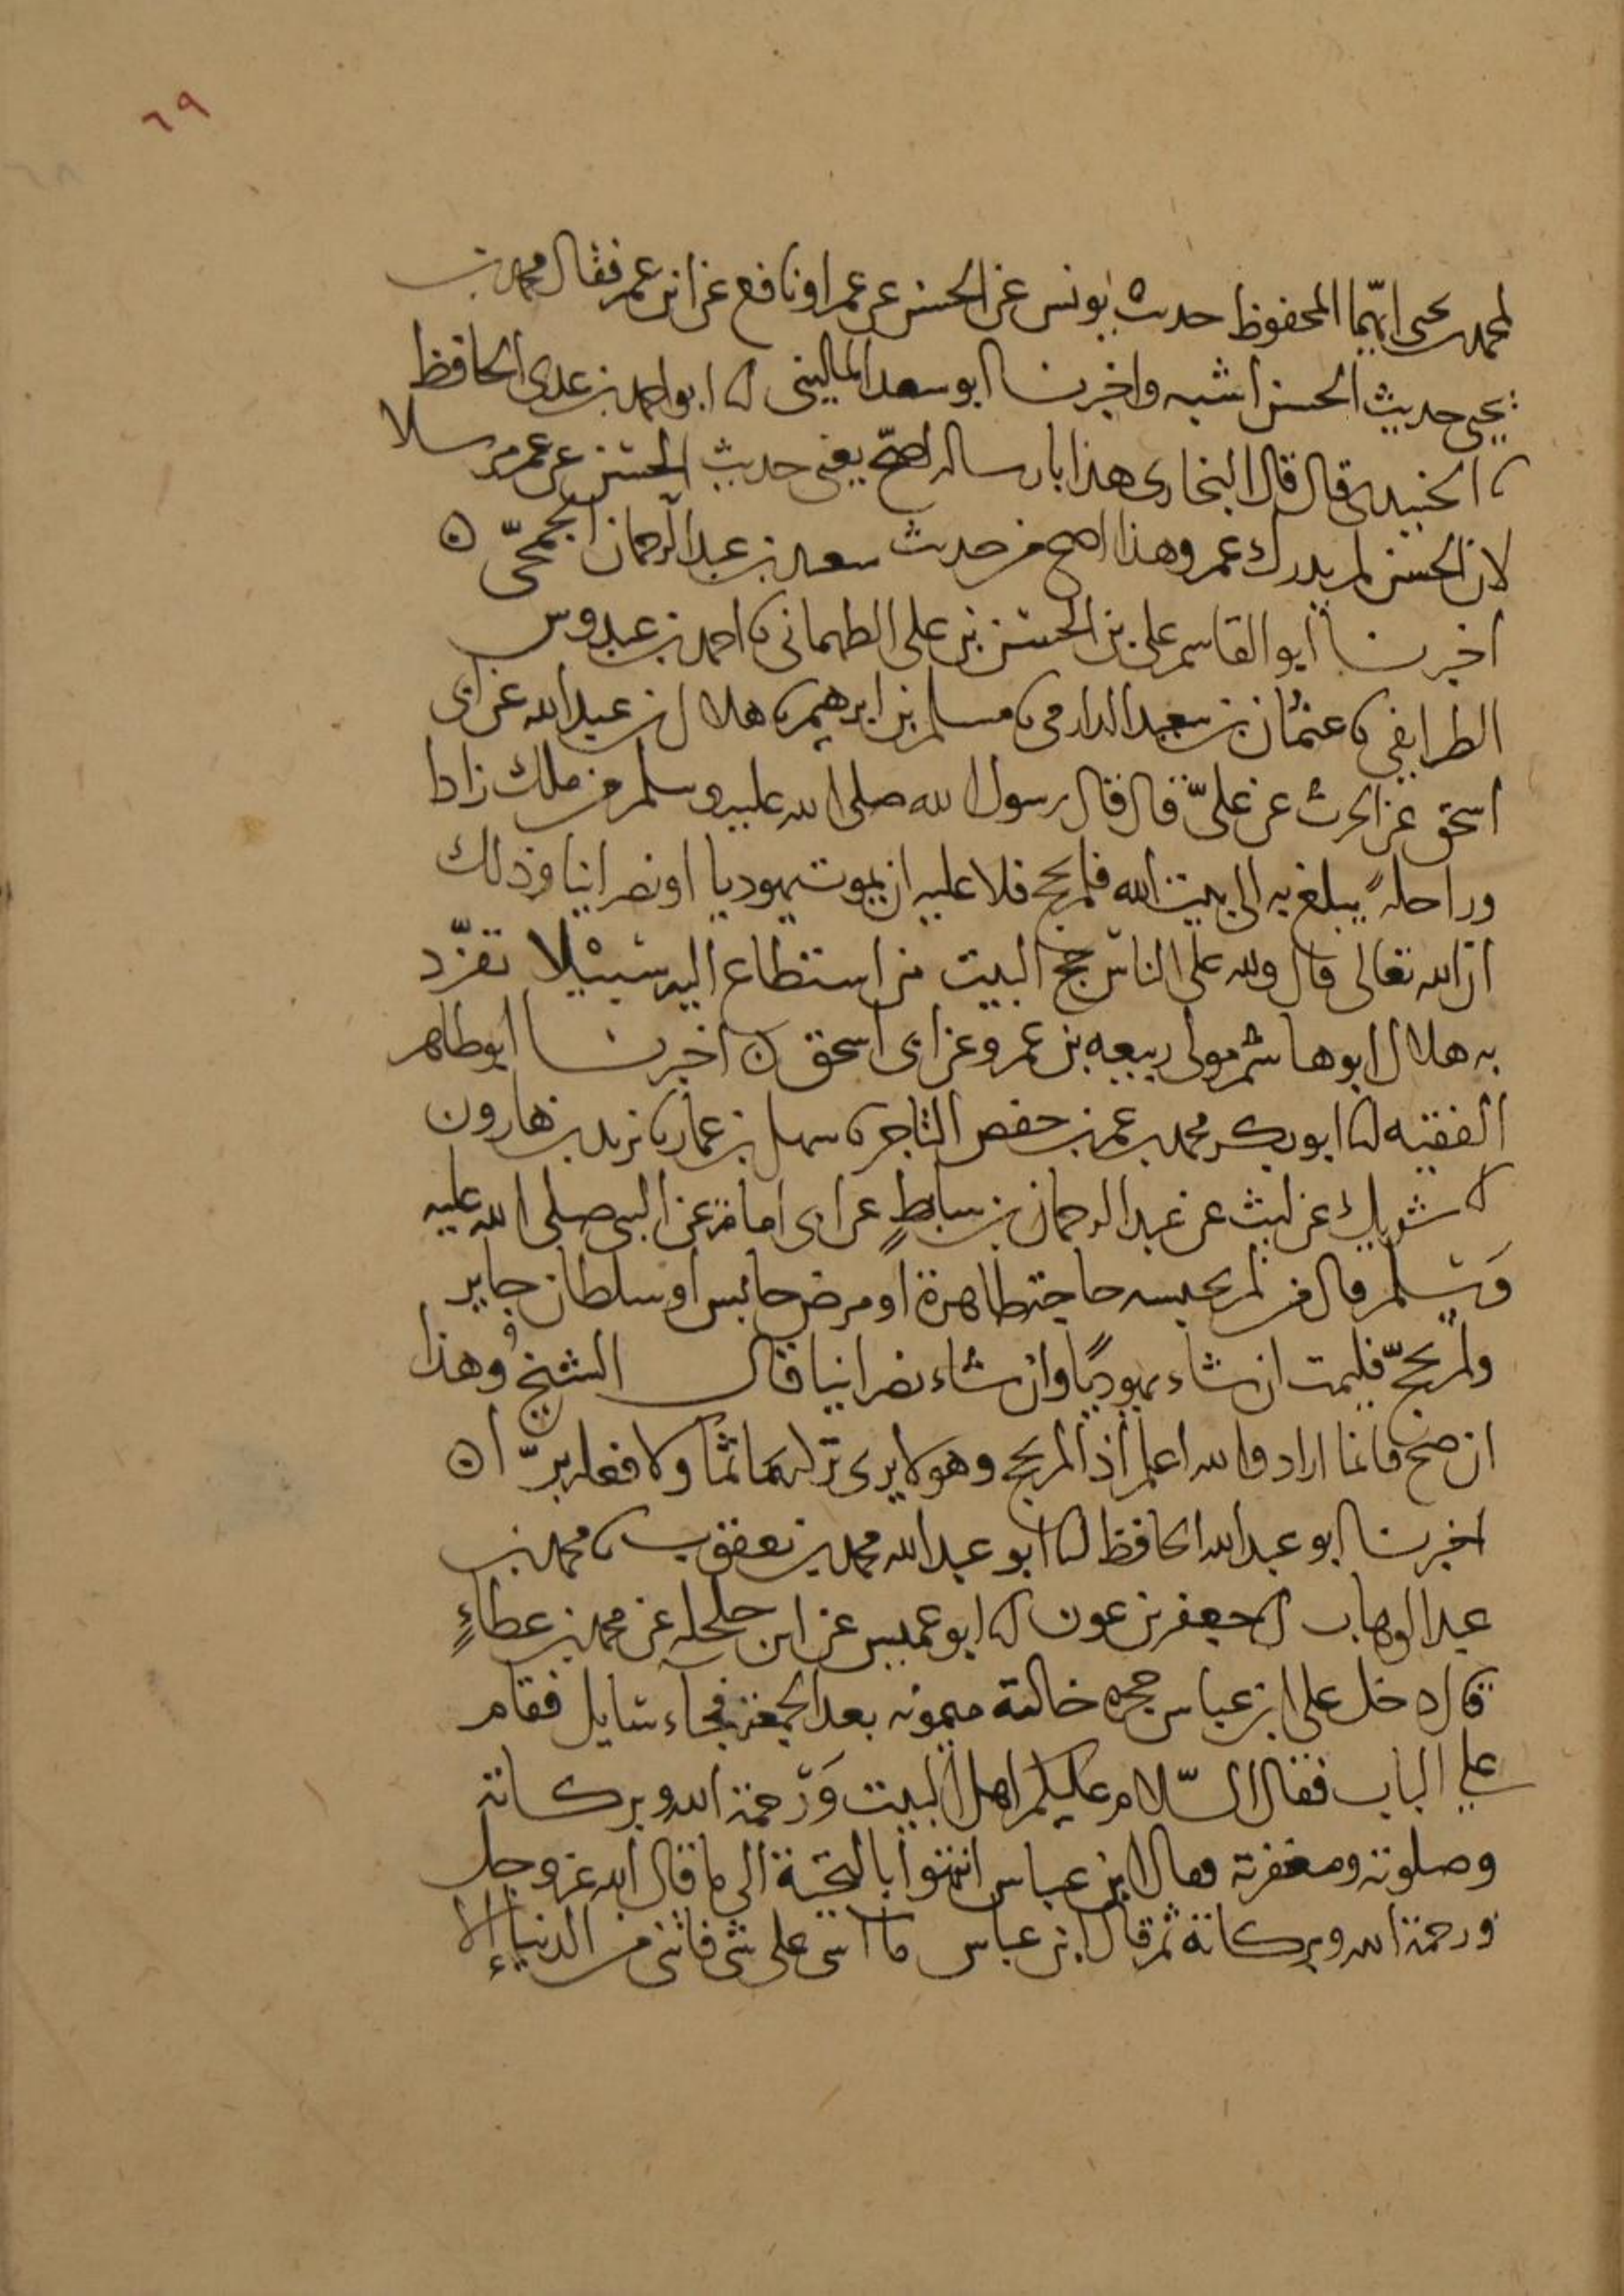 ٦٩
لمحمد بن يحيى ايهما المحفوظ حديث يونس عن الحسن عن عمر او نافع عن ابن عمر فقال محمد بن
يحيى حديث الحسن اشبه واخبرنا ابو سعد الماليني انا ابو احمد بن عدي الحافظ
نا الجنيدي قال قال البخاري هذا بارساله اصح يعني حديث الحسن عن عمر مرسلا
لان الحسن لم يدرك عمر وهذا اصح من حديث سعيد بن عبد الرحمان الجمحي ه
اخبرنا ابو القاسم علي بن الحسن بن علي الطهماني نا احمد بن عبدوس
الطرايفي نا عثمان بن سعيد الدارمي نا مسلم بن ابرهيم نا هلال بن عبد الله عن ابي
اسحق عن الحرث عن علي قال قال رسول الله صلى الله عليه وسلم من ملك زادا
وراحلة يبلغ به الى بيت الله فلم يحج فلا عليه ان يموت يهوديا او نصرانيا وذلك
ان الله تعالى قال ولله على الناس حج البيت من استطاع اليه سبيلا تفرد
به هلال ابو هاشم مولى ربيعه بن عمرو عن ابي اسحق ه اخبرنا ابو طاهر
الفقيه انا ابو بكر محمد بن عمر بن حفص التاجر نا سهل بن عمار نا يزيد بن هارون
انا شريك عن ليث عن عبد الرحمان بن سابط عن ابي امامة عن النبي صلى الله عليه
وسلم قال من لم يحبسه حاجة ظاهرة او مرض حابس او سلطان جاير
ولم يحج فليمت ان شاء يهوديا وان شاء نصرانيا قال الشيخ وهذا
ان صح فانما اراد والله اعلم اذا لم يحج وهو لا يرى تركه ماثما ولا فعله برا ه
اخبرنا ابو عبد الله الحافظ انا ابو عبد الله محمد بن يعقوب نا محمد بن
عبد الوهاب انا جعفر بن عون انا ابو عميس عن ابن حلحله عن محمد بن عطاء
قال دخل علي ابن عباس حجره خالته ميمونه بعد الجمعة فجاء سايل فقام
على الباب فقال السلام عليكم اهل البيت ورحمة الله وبركاته
وصلوته ومغفرته فقال ابن عباس انتهوا بالتحية الى ما قال الله عز وجل
ورحمة الله وبركاته ثم قال ابن عباس ما اسى على شى فاتني من الدنيا الا